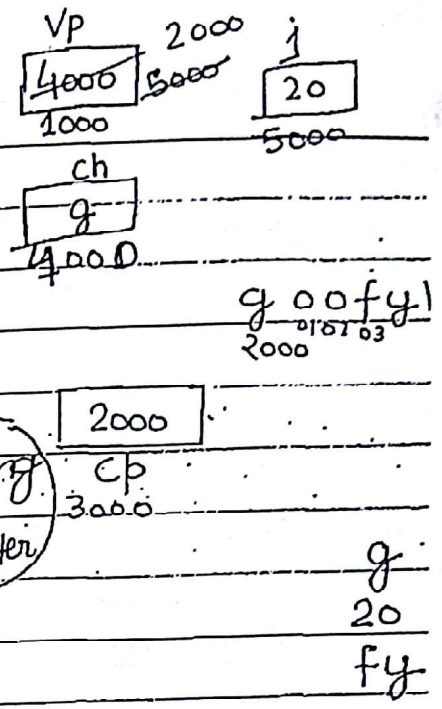 Vp 2000 j
4000 5000 20
1000 5000
ch
g
4000
g o o f y \
01 02 03
2000
2000
g cp
3000
g
20
fy